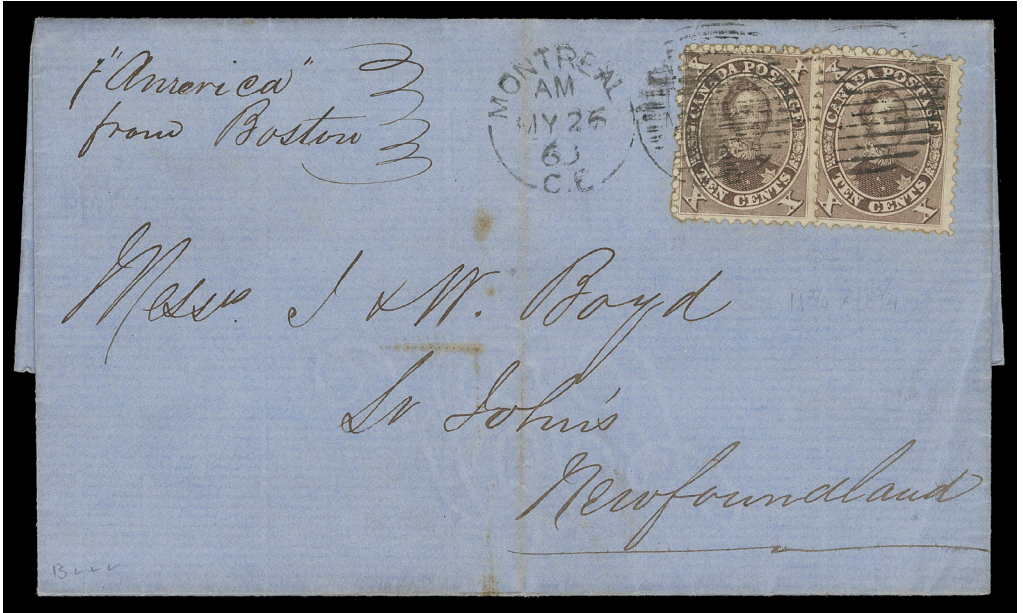 p "America"
from Boston
MONTREAL
AM
MY 26
63
C.E
CANADA POSTAGE
TEN CENTS
X X X X
CANADA POSTAGE
TEN CENTS
X X X
Messrs J & W. Boyd
St John's
Newfoundland
11¾ x 11¾